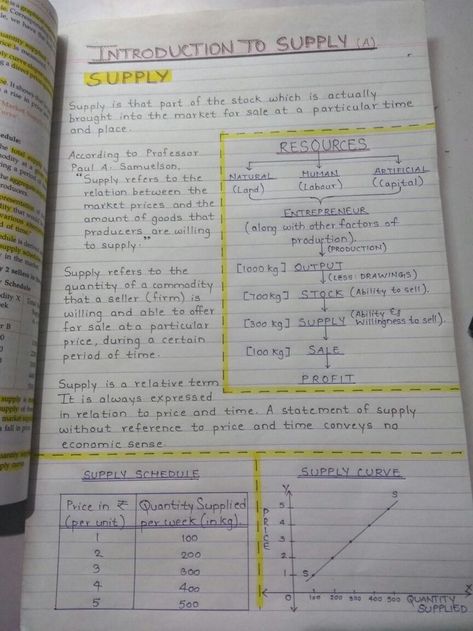 INTRODUCTION TO SUPPLY (A)
SUPPLY
Supply is that part of the stock which is actually
brought into the market for sale at a particular time
and place.
According to Professor
Paul A. Samuelson,
"Supply refers to the
relation between the
market prices and the
amount of goods that
producers are willing
to supply."
Supply refers to the
quantity of a commodity
that a seller (firm) is
willing and able to offer
for sale at a particular
price, during a certain
period of time.
Supply is a relative term
It is always expressed
in relation to price and time. A statement of supply
without reference to price and time conveys no
economic sense.
RESOURCES
NATURAL HUMAN ARTIFICIAL
(Land) (Labour) (Capital)
ENTREPRENEUR
(along with other factors of
production).
(PRODUCTION)
[1000 kg] OUTPUT
(LESS: DRAWINGS)
[700 kg] STOCK (Ability to sell).
[300 kg] SUPPLY (Ability &
Willingness to sell).
[100 kg] SALE
PROFIT
SUPPLY SCHEDULE
Price in ₹ Quantity Supplied
(per unit) per week (in kg).
1 100
2 200
3 300
4 400
5 500
SUPPLY CURVE
Y
PRICE
5
4
3
2
1
0
S
S
100 200 300 400 500
X
QUANTITY
SUPPLIED